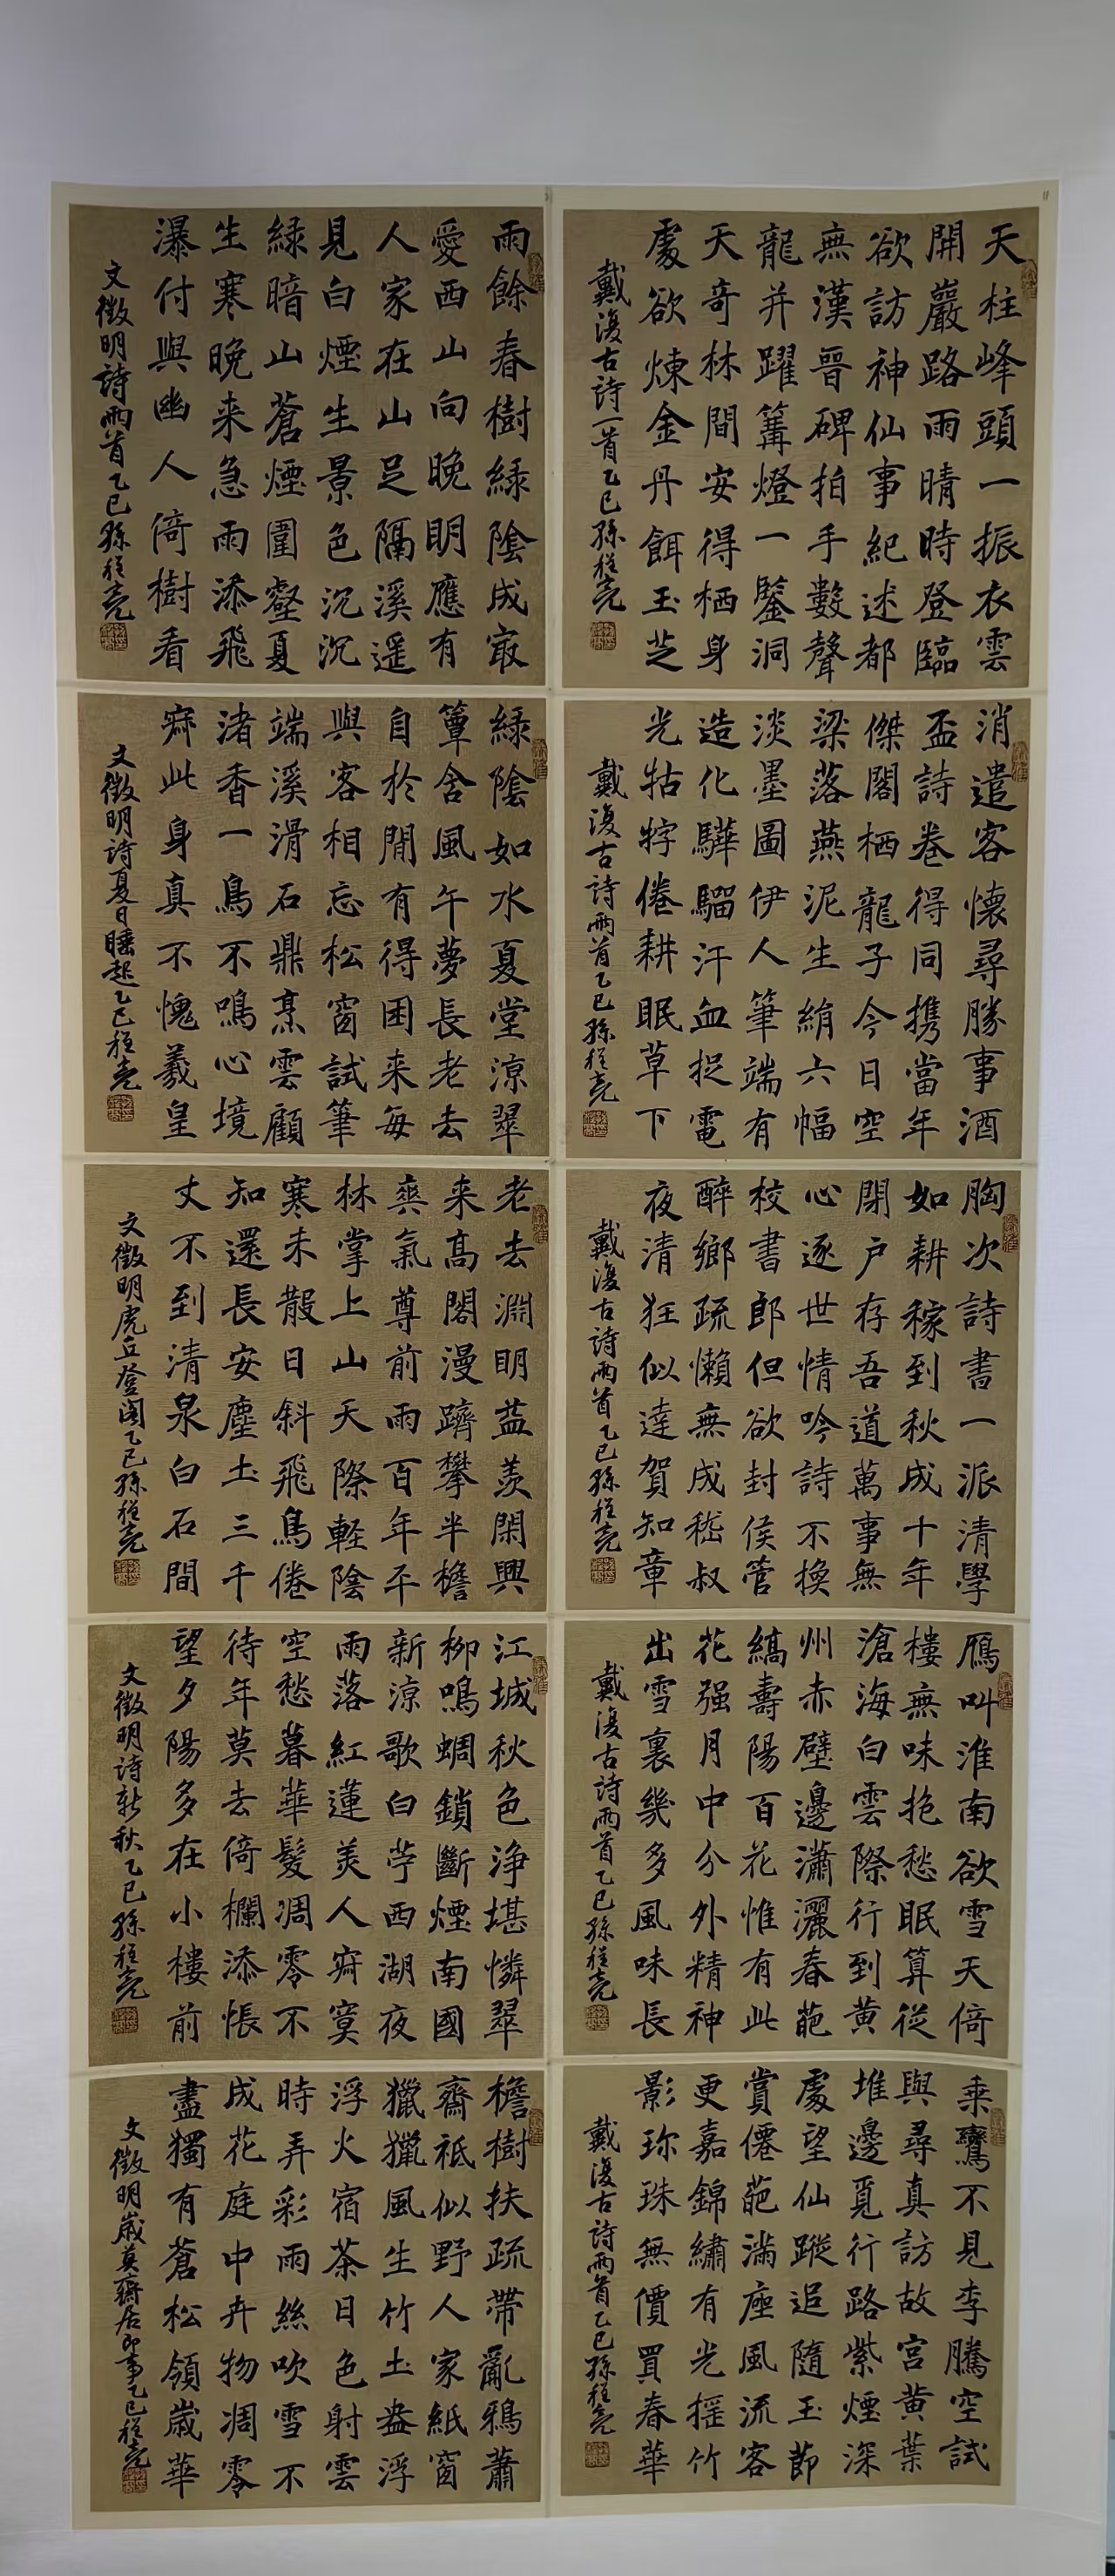 天柱峰頭一振衣雲
開巖路雨晴時登臨
欲訪神仙事紀述都
無漢晉碑拍手數聲
龍并躍篝燈一鑒洞
天奇林間安得栖身
處欲煉金丹餌玉芝
戴復古詩一首乙巳孫程亮
雨餘春樹綠陰成寂
愛西山向晚明應有
人家在山足隔溪遥
見白煙生景色沉沉
綠暗山蒼煙圍壑夏
生寒晚来急雨添飛
瀑付與幽人倚樹看
文徵明詩兩首乙巳孫程亮
消遣客懷尋勝事酒
盃詩卷得同携當年
傑閣栖龍子今日空
梁落燕泥生綃六幅
淡墨圖伊人筆端有
造化驊騮汗血捉電
光牯牸倦耕眠草下
戴復古詩兩首乙巳孫程亮
綠陰如水夏堂涼翠
簟含風午夢長老去
自於閒有得困来每
與客相忘松窗試筆
端溪滑石鼎烹雲顧
渚香一鳥不鳴心境
寂此身真不愧羲皇
文徵明詩夏日睡起乙巳程亮
胸次詩書一派清學
如耕稼到秋成十年
閉户存吾道萬事無
心逐世情吟詩不換
校書郎但欲封侯管
醉鄉疏懶無成嵇叔
夜清狂似達賀知章
戴復古詩兩首乙巳孫程亮
老去淵明益羨閑興
来高閣漫躋攀半檐
爽氣尊前雨百年平
林掌上山天際輕陰
寒未散日斜飛鳥倦
知還長安塵土三千
丈不到清泉白石間
文徵明虎丘登閣乙巳孫程亮
鴈叫淮南欲雪天倚
樓無味抱愁眠算從
滄海白雲際行到黄
州赤壁邊瀟灑春葩
縞壽陽百花惟有此
花强月中分外精神
出雪裏幾多風味長
戴復古詩兩首乙巳孫程亮
江城秋色浄堪憐翠
柳鳴蜩鎖斷煙南國
新涼歌白苧西湖夜
雨落紅蓮美人寂寞
空愁暮華髮凋零不
待年莫去倚欄添悵
望夕陽多在小樓前
文徵明詩新秋乙巳孫程亮
乘鸞不見李騰空試
與尋真訪故宫黄葉
堆邊覓行路紫煙深
處望仙蹤追隨玉節
賞僊葩滿座風流客
更嘉錦繡有光揺竹
影珍珠無價買春華
戴復古詩兩首乙巳孫程亮
檐樹扶疏帶亂鴉蕭
齋祇似野人家紙窗
獵獵風生竹土盎浮
浮火宿茶日色射雲
時弄彩雨絲吹雪不
成花庭中卉物凋零
盡獨有蒼松領歲華
文徵明歲莫齋居即事乙巳程亮